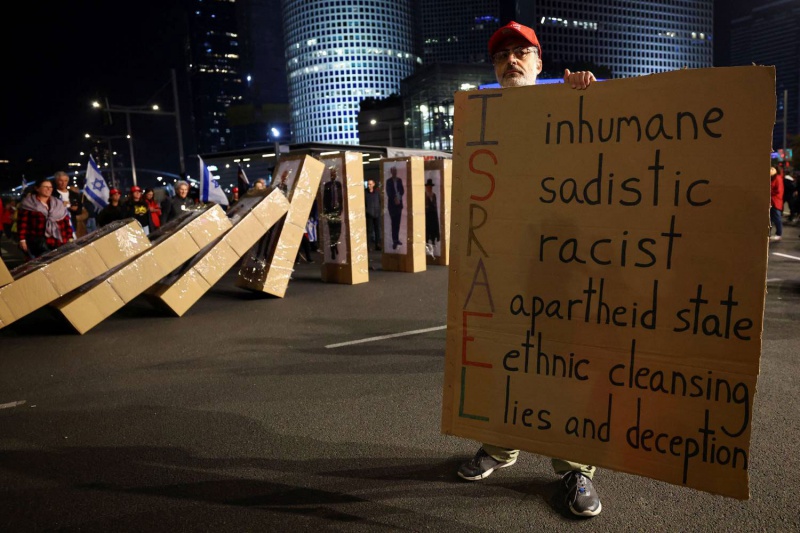 I inhumane
S sadistic
R racist
A apartheid state
E ethnic cleansing
L lies and deception